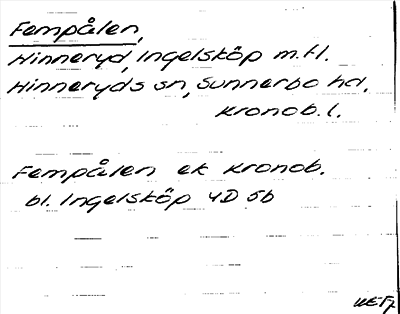 Fempålen,
Hinneryd, Ingelsköp m.fl.
Hinneryds sn, Sunnerbo hd.
Kronob. l.
Fempålen ek Kronob.
bl. Ingelsköp 4D 5b